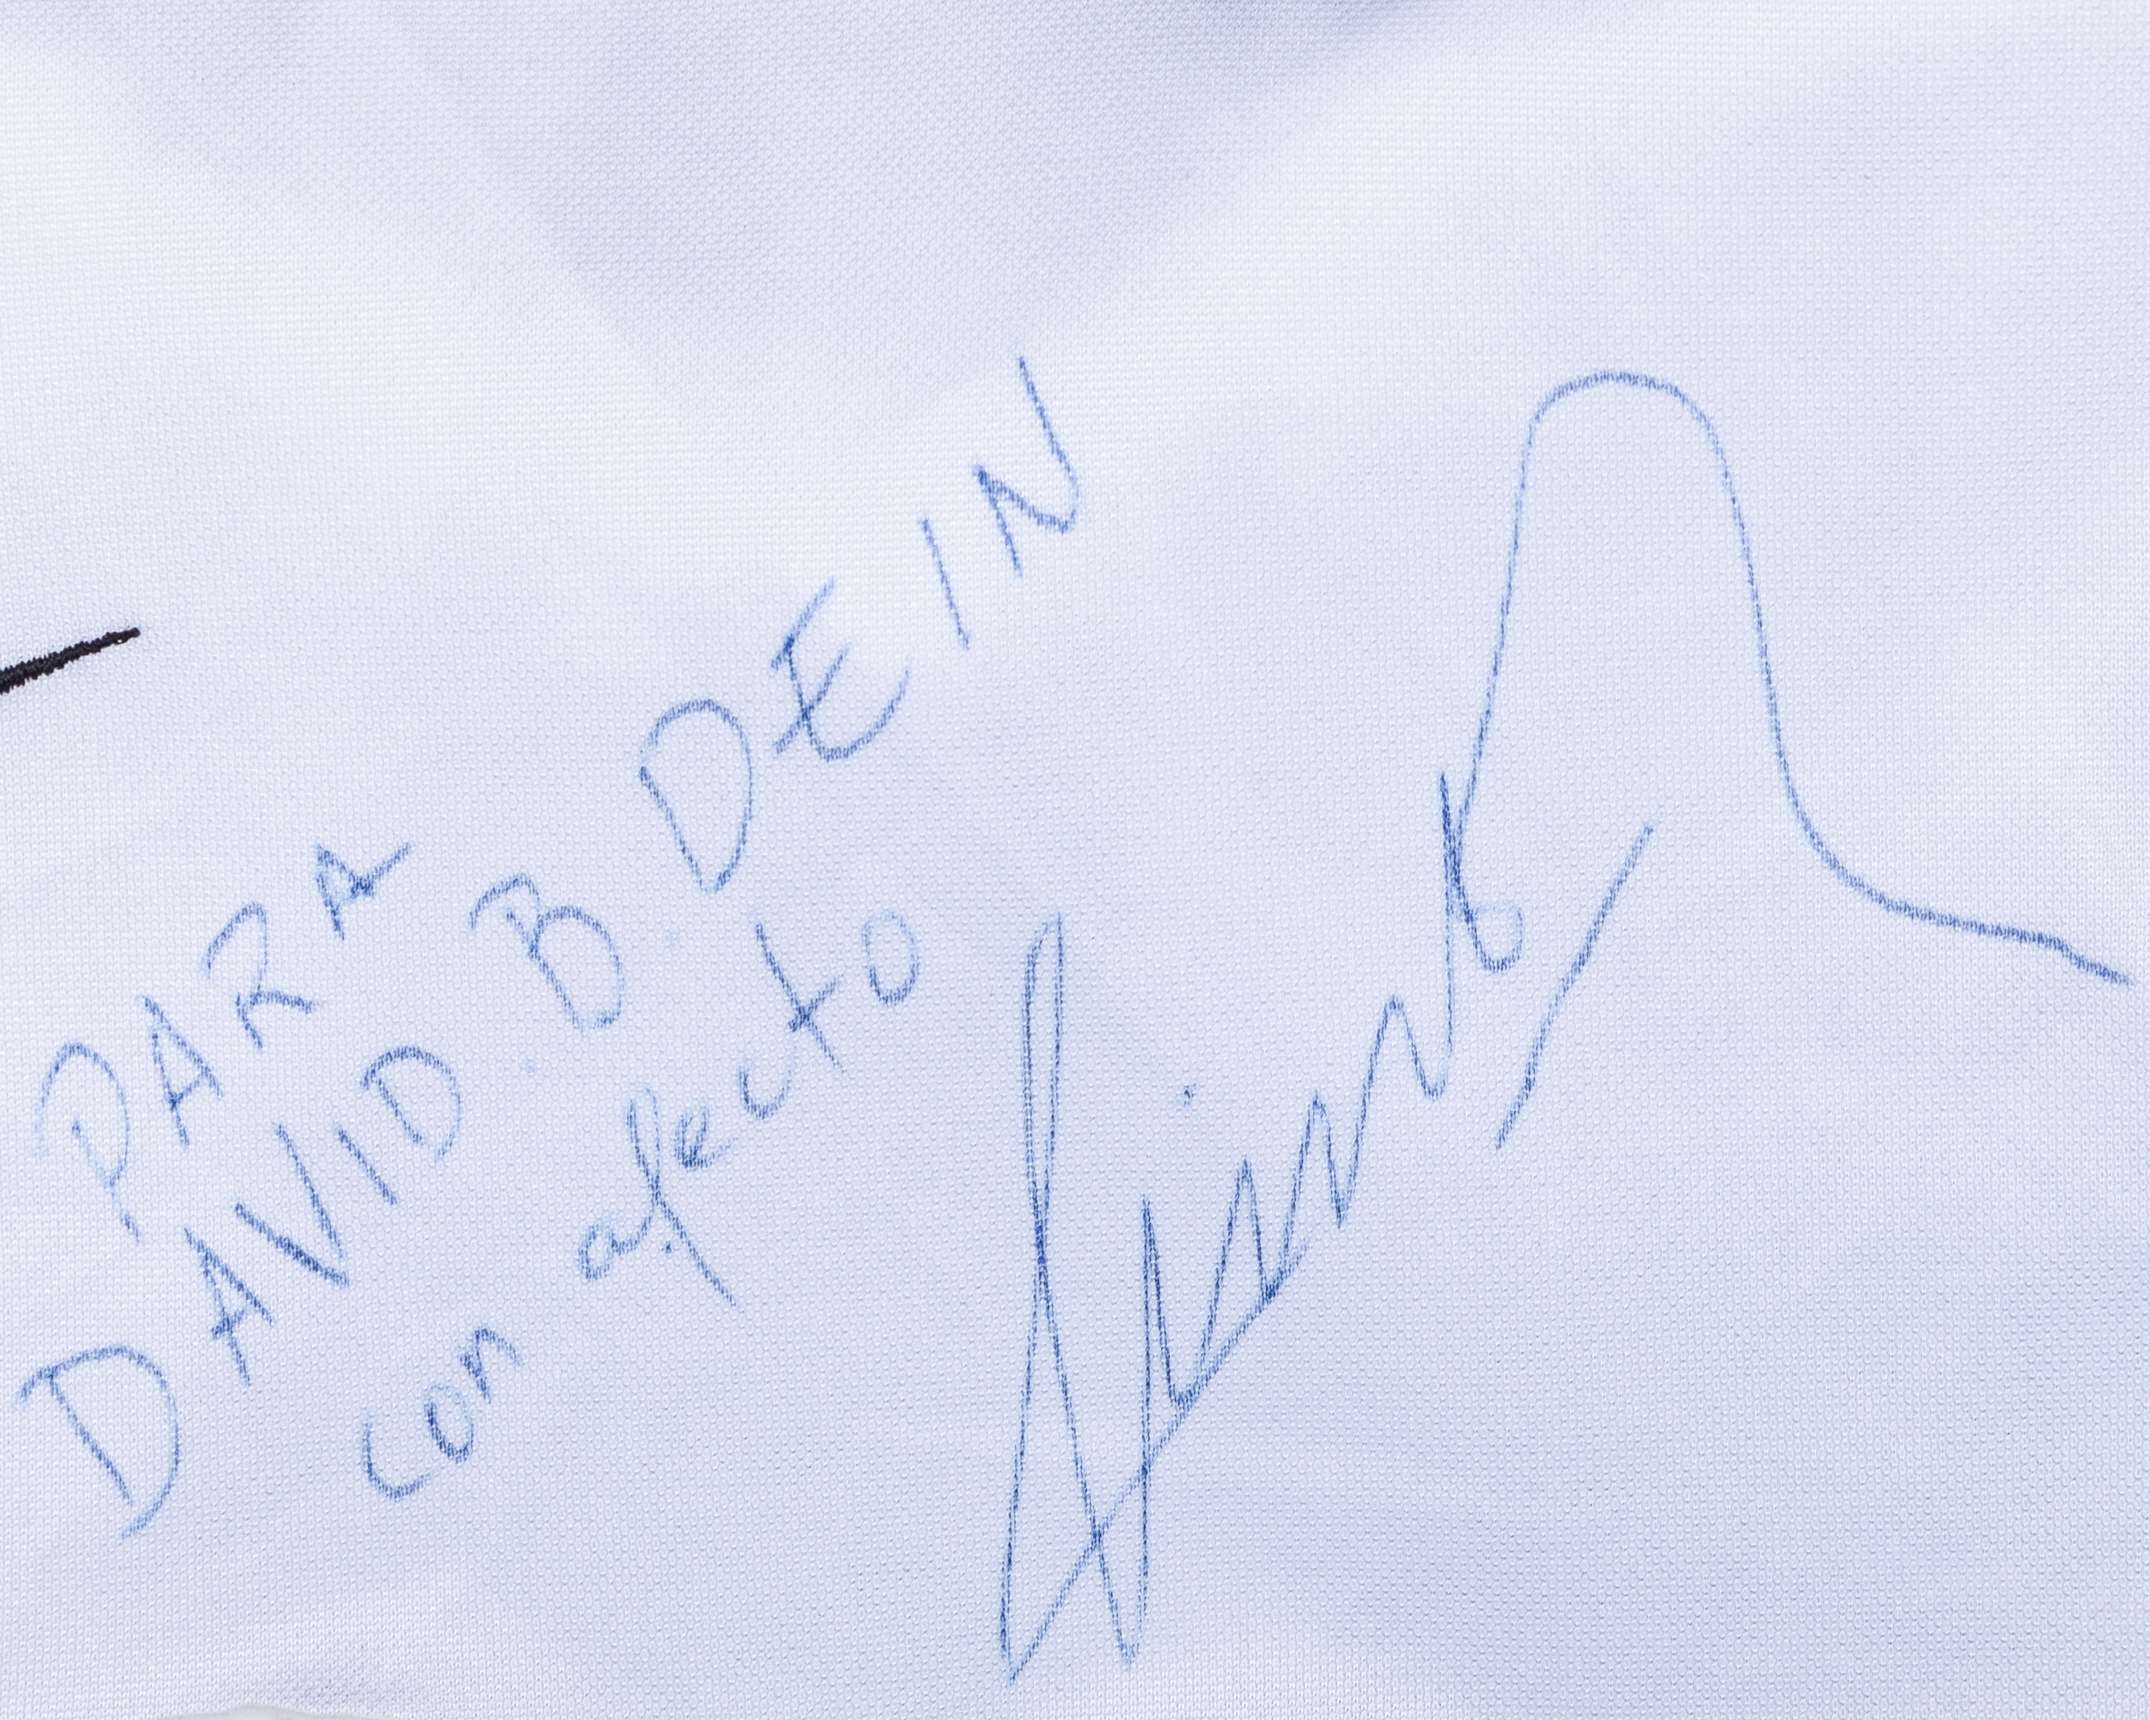 PARA
DAVID B. DEIN
con afecto